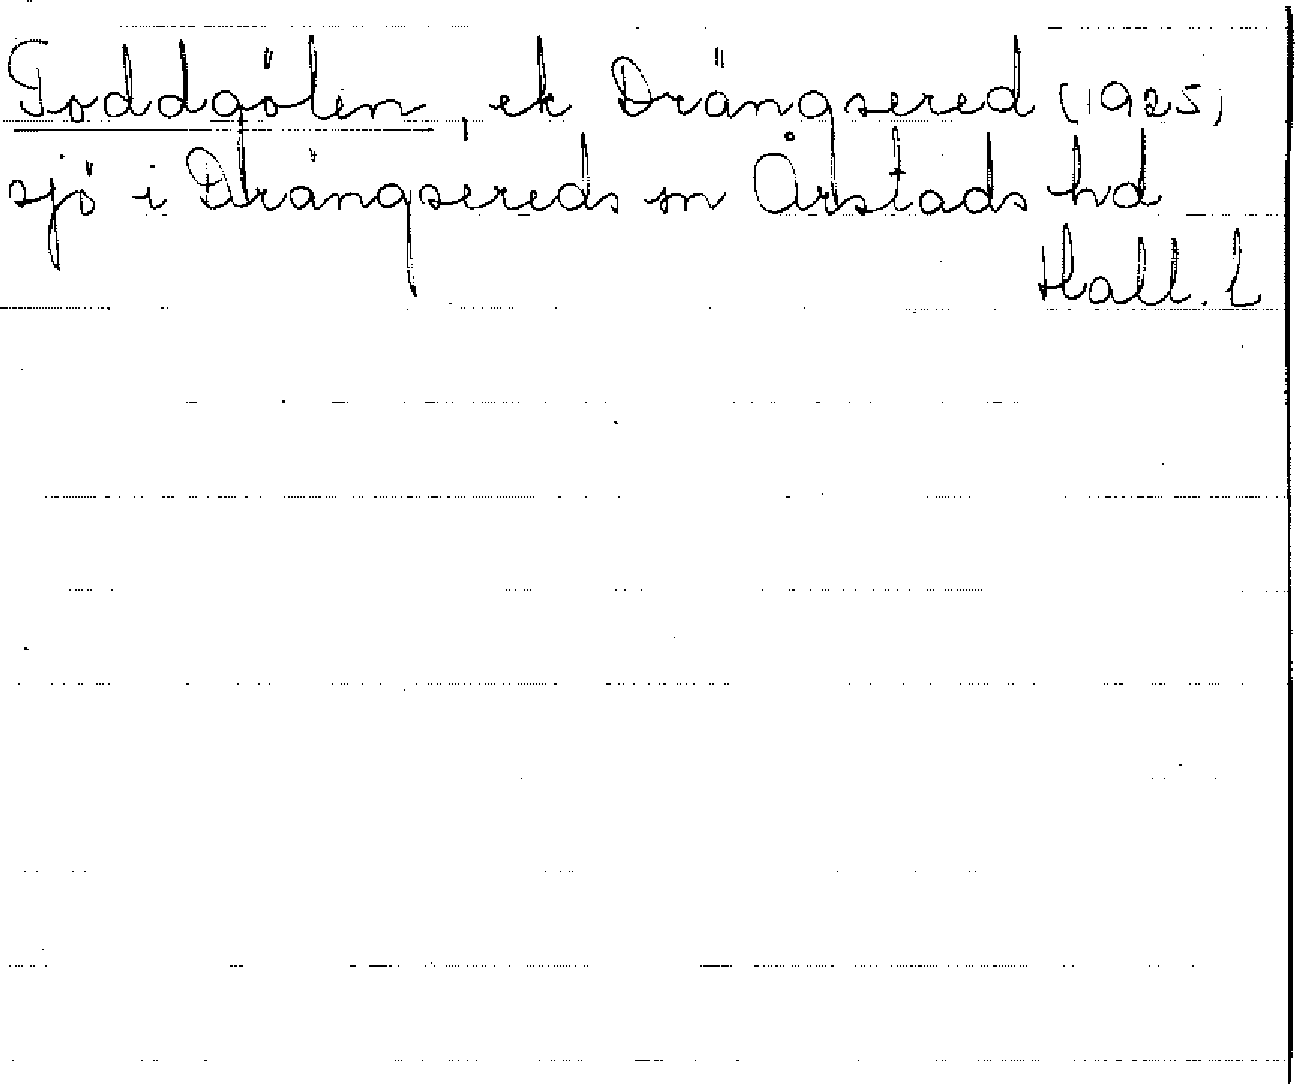 Toddgölen, ek Drängsered (1925)
sjö i Drängsereds sn Årstads hd
Hall. l